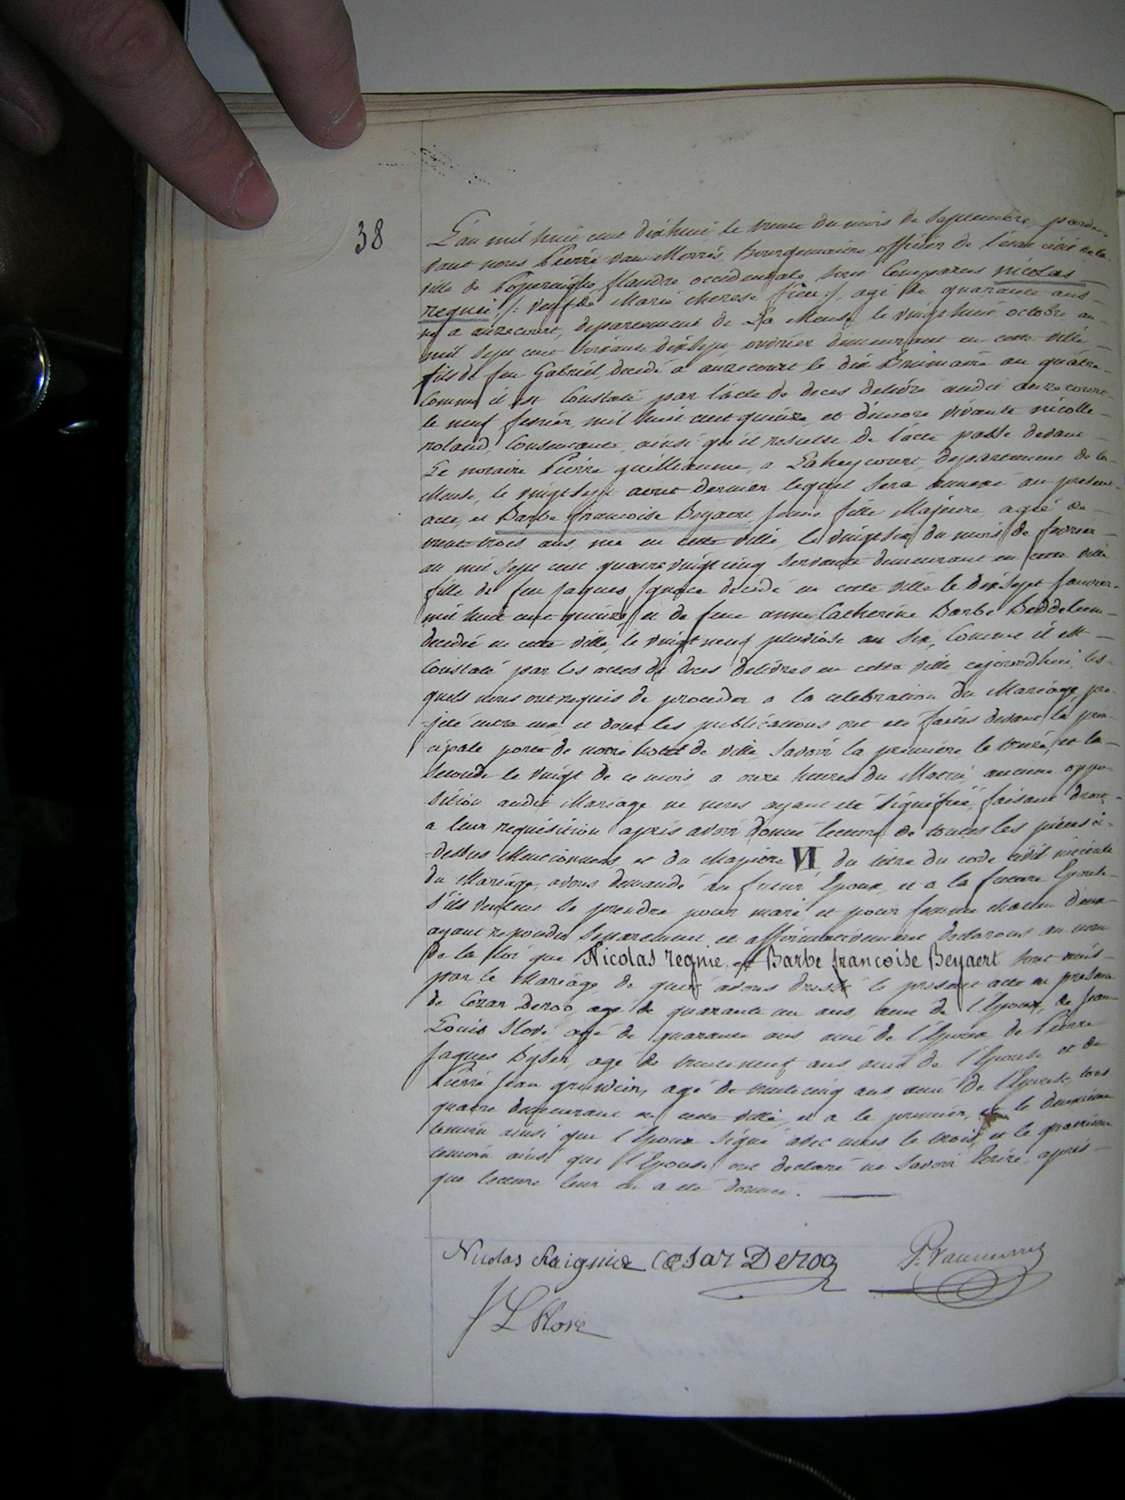 38
L'an mil huit cent dixhuit le trente du mois de Septembre, parde-
vant nous Pierre Van Merris, Bourguemaitre officier de l'état civil de la
ville de Poperinghe, flandre occidentale, sont Comparus nicolas
regnie, /: veuf de Marie therese :/ agé de quarante ans
né a auzecourt, departement de La Meuse, le vingthuit octobre an
mil sept cent soixante dixsept, ouvrier demeurant en cette ville
fils de feu Gabriel, decedé a auzecourt le dix Brumaire an quatre
Comme il est Constaté par l'acte de deces delivré audit auzecourt
le neuf fevrier mil huit cent quinze, et d'encore vivante nicolle
roland, Consentante, ainsi qu'il resulte de l'acte passé devant
Le notaire Pierre guilleaume, a Laheycourt, departement de la
Meuse, le vingt sept aout dernier lequel sera annexé au present
acte, et Barbe francoise Beyaert jeune fille Majeure, agée de
trente trois ans, née en cette ville, le vingtsix du mois de fevrier
an mil sept cent quatre vingt cinq servante demeurant en cette ville
fille de feu Jaques Ignace decedé en cette ville le dixsept Janvier
mil huit cent quinze, et de feue anne Catherine Barbe
decedée en cette ville, le vingt neuf pluviose an six, Comme il est
Constaté par les actes de deces delivrés en cette ville cejourdhui, les-
quels nous ont requis de proceder a la celebration du Mariage pro-
jeté entre eux et dont les publications ont eté faites devant la prin-
cipale porte de notre hotel de ville, Savoir la premiere le treize, et la
seconde le vingt de ce mois, a onze heures du Matin, aucune oppo-
sition audit Mariage ne nous ayant eté signifiée, faisant droit
a leur requisition, apres avoir donné lecture de toutes les pieces ci-
dessus Mentionnées, et du chapitre VI du titre du code civil intitulé
du Mariage, avons demandé au futur Epoux, et a la future Epouse
s'ils veulent se prendre pour mari et pour femme chacun d'eux
ayant repondu Separement et affirmativement declarons au nom
de la Loi que Nicolas regnie, et Barbe francoise Beyaert sont unis
par le Mariage, de quoi avons dressé le present acte en presence
de Cezar Deroo agé de quarante un ans, ami de l'Epoux, de Jean
Louis Hové agé de quarante ans ami de l'Epoux de Pierre
Jaques agé de trenteneuf ans ami de l'Epouse et de
Pierre Jean agé de trentecinq ans ami de l'Epouse, tous
quatre demeurant en cette ville, et a le premier, et le deuxieme
temoin ainsi que l'Epoux signé avec nous le trois et le quatrieme
temoin ainsi que l'Epouse ont declaré ne savoir Ecrire, apres
que lecture leur en a eté donnée.
Nicolas Raignie Cæsar Deroo P. Vanmerris
J L Hové